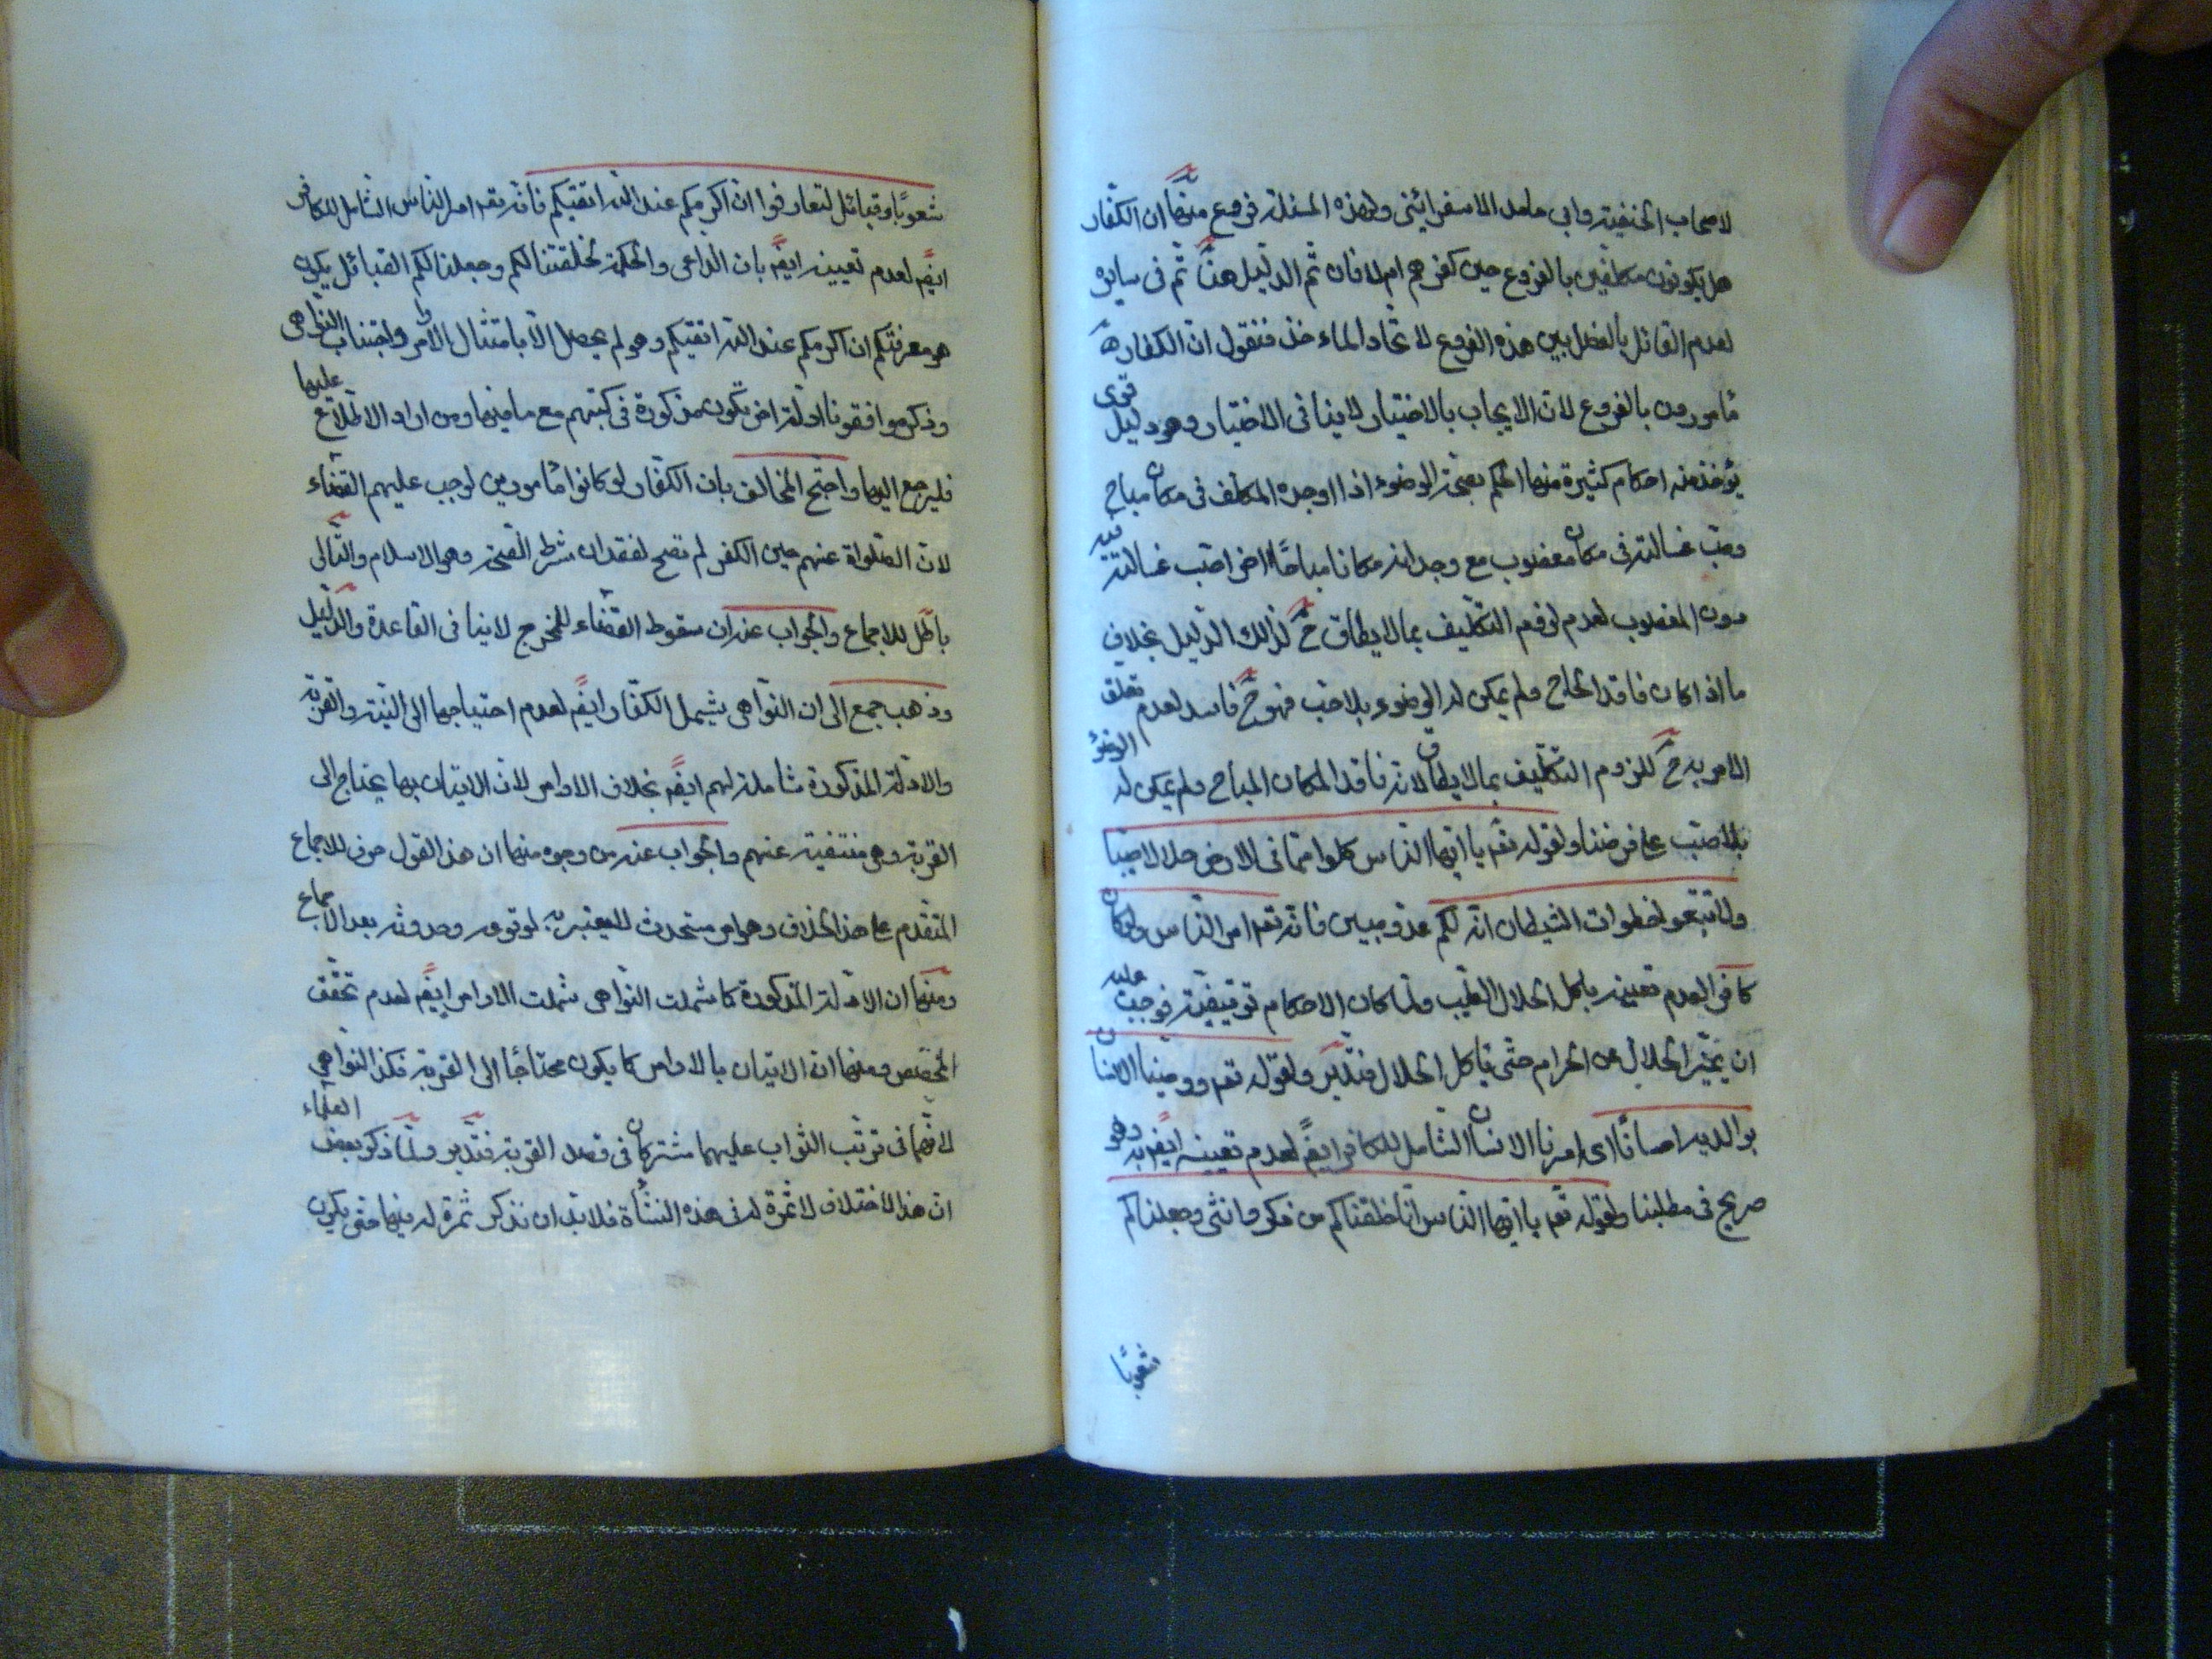 لاصحاب الحنفية وابي حامد الاسفرائيني ولهذه المسئلة فروع منها ان الكفار
هل يكونون مكلفين بالفروع حين كفرهم ام لا فان تم الدليل هنا تم في سايره
لعدم القائل بالفصل بين هذه الفروع لاتحاد الماءخذ فنقول ان الكفار
مأمورون بالفروع لان الايجاب بالاختيار لاينافى الاختيار وهو دليل قوى
يؤخذ منه احكام كثيرة منها الحكم بصحة الوضوء اذا اوجده المكلف في مكان مباح
وصب غسالته في مكان مغصوب مع وجدانه مكانا مباحًا اخر اصب غسالته فيه
دون المغصوب لعدم لزوم التكليف بما لا يطاق ح لذلك الدليل بخلاف
ما اذا كان فاقد المباح ولم يمكن له الوضوء بلا صب فهو ح فاسد لعدم تعلق
الامر به ح للزوم التكليف بما لا يطاق لانه فاقد المكان المباح ولم يمكن له الوضوء
بلا صب على فرضنا ولقوله تعه يا ايها الناس كلوا مما فى الارض حلالا طيبا
ولا تتبعوا خطوات الشيطان انه لكم عدو مبين فانه تعه امر الناس ولو كان
كافرا لعدم تعيينه باكل الحلال الطيب ولما كان الاحكام توقيفية فوجب عليه
ان يميّز الحلال عن الحرام حتى ياكل الحلال فتدبّر ولقوله تعه ووصينا الانسان
بوالديه احسانًا اى امرنا الانسان الشامل للكافر ايضًا لعدم تعيينه ايضًا به وهو
صريح فى مطلبنا ولقوله تعه يا ايها الناس انا خلقناكم من ذكر وانثى وجعلناكم
شعوبًا
شعوبًا وقبائل لتعارفوا ان اكرمكم عند الله اتقيكم فانه تعه امر الناس الشامل للكافر
ايضًا لعدم تعيينه ايضًا بان الداعى والحكمة لخلقتنا لكم وجعلنا لكم القبائل يكون
هو معرفتكم ان اكرمكم عند الله اتقيكم وهو لم يحصل الا بامتثال الاوامر واجتناب النواهى
وذكر موافقونا ادلة اخر تكون مذكورة فى كتبهم مع ما فيها ومن اراد الاطلاع عليها
فليرجع اليها واحتج المخالف بان الكفار لو كانوا مأمورين لوجب عليهم القضاء
لان الصلواة عنهم حين الكفر لم تصح لفقدان شرط الصحة وهو الاسلام والتالى
باطل للاجماع والجواب عنه ان سقوط القضاء للمخرج لاينافى القاعدة والدليل
وذهب جمع الى ان النواهى يشمل الكفار ايضًا لعدم احتياجها الى النية والقربة
والادلة المذكورة شاملة لهم ايضًا بخلاف الاوامر لان الاتيان بها يحتاج الى
القربة وهى منتفية عنهم والجواب عنه من وجوه منها ان هذا القول خرق للاجماع
المتقدم على هذا الخلاف وهو امر مستحدث لا يعتبر به لوقوعه وحدوثه بعد الاجماع
ومنها ان الادلة المذكورة كما شملت النواهى شملت الاوامر ايضًا لعدم تحقق
المخصص ومنها ان الاتيان بالاوامر كما يكون محتاجًا الى القربة فكذا النواهى
لانهما فى ترتب الثواب عليهما مشتركان فى قصد القربة فتدبّر ولما ذكر بعض العلماء
ان هذا الاختلاف لا ثمرة له فى هذه النشأة فلا بد ان نذكر ثمرة له فيها حتى يكون